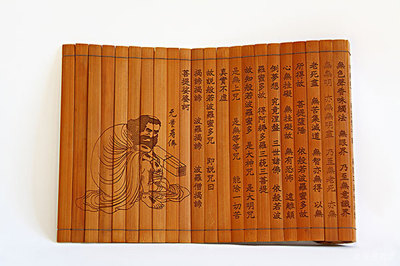 無色聲香味觸法 無眼界 乃至無意識界
無無明 亦無無明盡 乃至無老死 亦無
老死盡 無苦集滅道 無智亦無得 以無
所得故 菩提薩陲 依般若波羅蜜多故
心無挂礙 無挂礙故 無有恐怖 遠離顛
倒夢想 究竟涅盤 三世諸佛 依般若波
羅蜜多故 得阿耨多羅三藐三菩提
故知般若波羅蜜多 是大神咒 是大明咒
是無上咒 是無等等咒 能除一切苦
真實不虛
故說般若波羅蜜多咒 即說咒曰
揭諦揭諦 波羅揭諦 波羅僧揭諦
菩提娑婆訶
无量壽佛